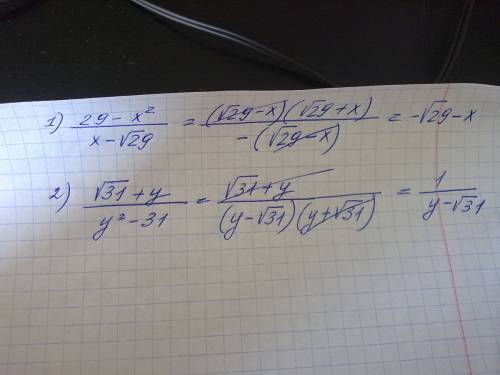 1) (29 - x²)/(x - √29) = ((√29 - x)(√29 + x))/(-(√29 - x)) = -√29 - x
2) (√31 + y)/(y² - 31) = (√31 + y)/((y - √31)(y + √31)) = 1/(y - √31)